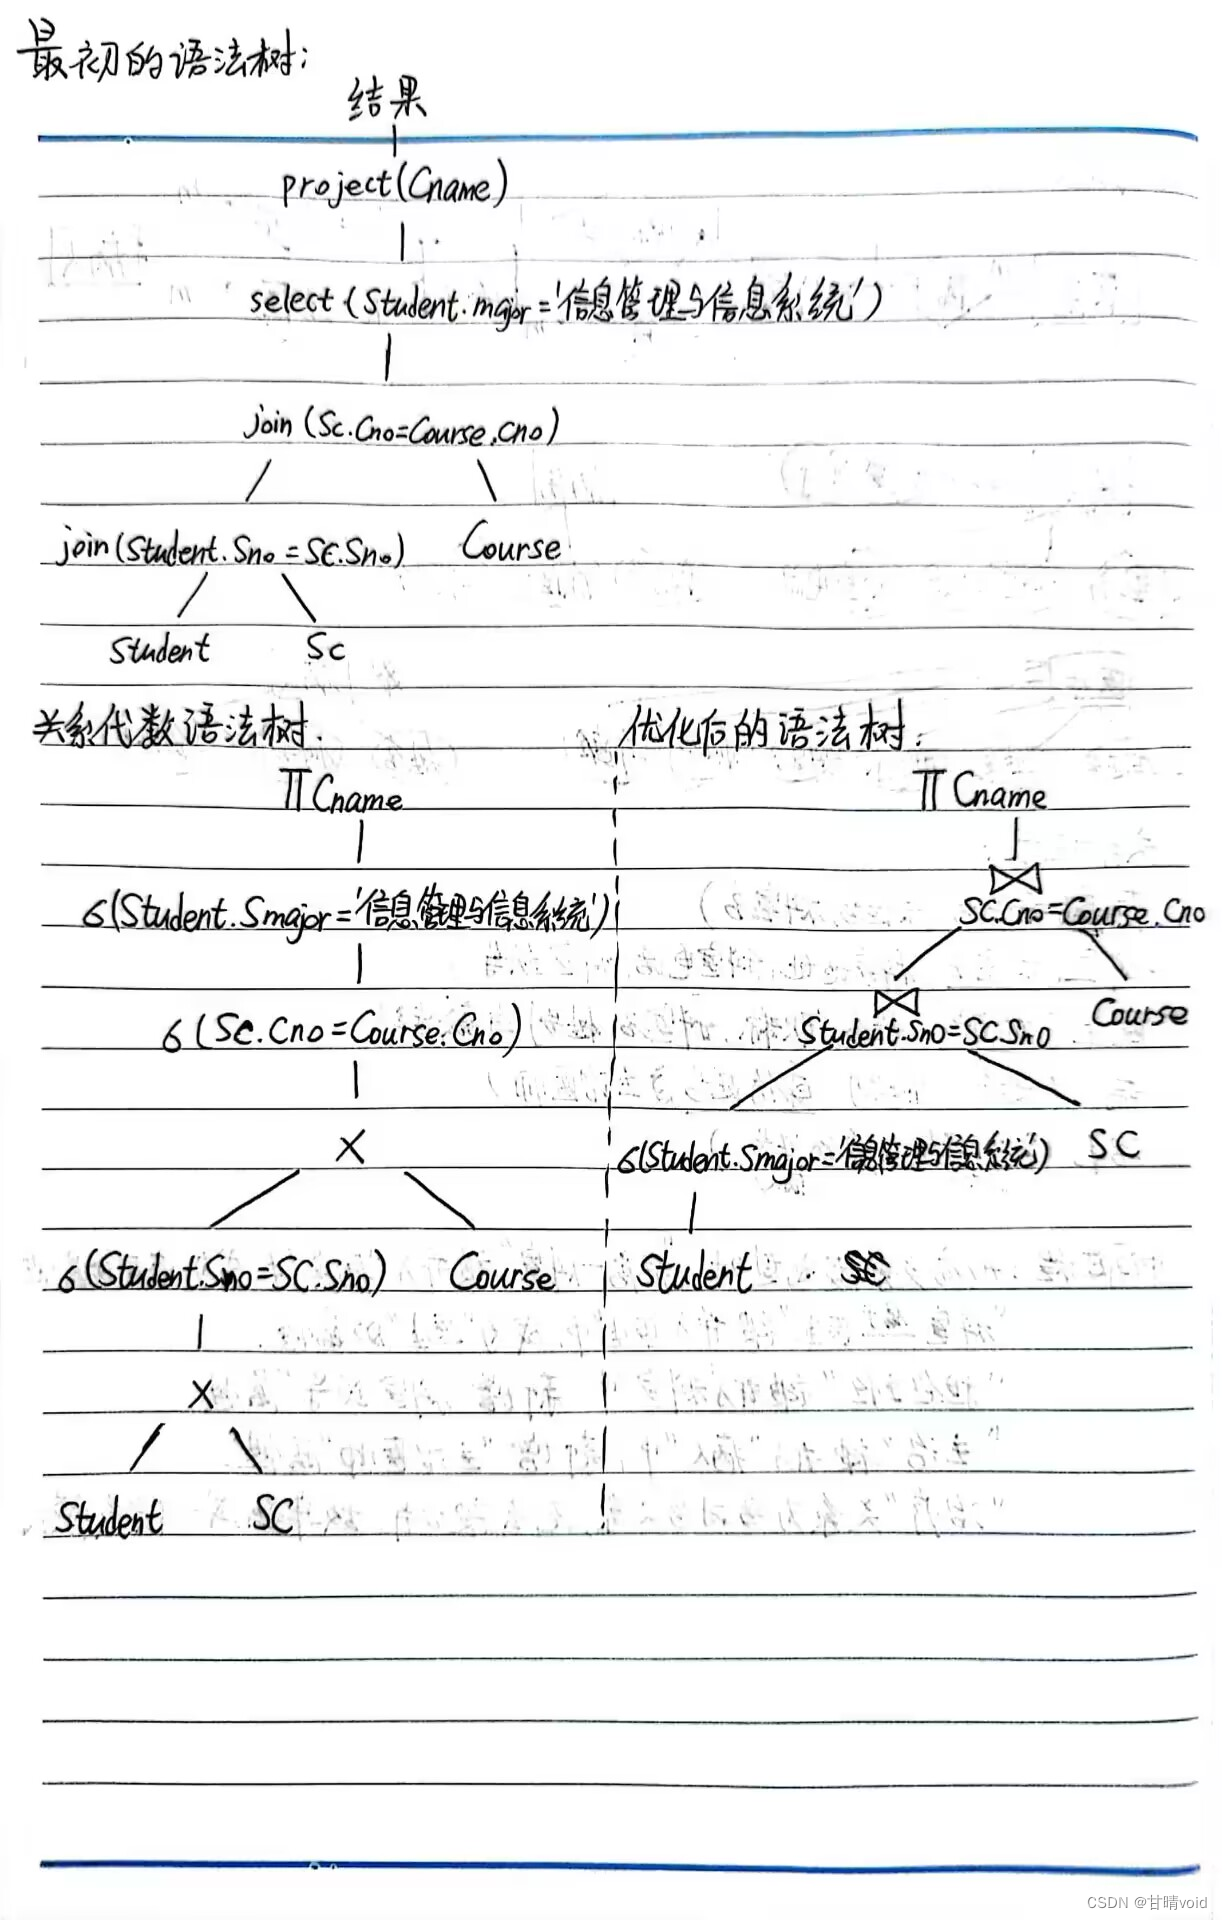 最初的语法树:
结果
project(Cname)
select (Student.major='信息管理与信息系统')
join (Sc.Cno=Course.Cno)
join(Student.Sno=SC.Sno) Course
Student Sc
关系代数语法树.
ΠCname
6(Student.Smajor='信息管理与信息系统')
6(Sc.Cno=Course.Cno)
X
6(Student.Sno=SC.Sno) Course
X
Student SC
优化后的语法树:
Π Cname
⋈
SC.Cno=Course.Cno
⋈ Course
Student.Sno=SC.Sno
6(Student.Smajor='信息管理与信息系统') SC
Student
CSDN @甘晴void